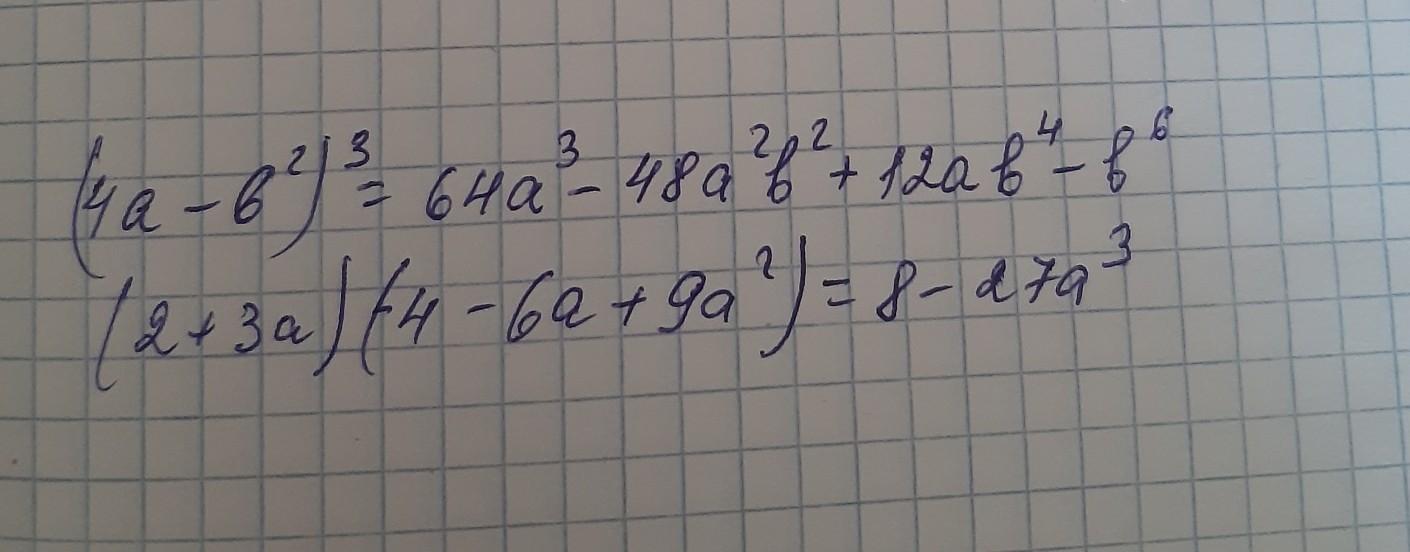 (4a - b²)³ = 64a³ - 48a²b² + 12ab⁴ - b⁶
(2 + 3a)(4 - 6a + 9a²) = 8 - 27a³